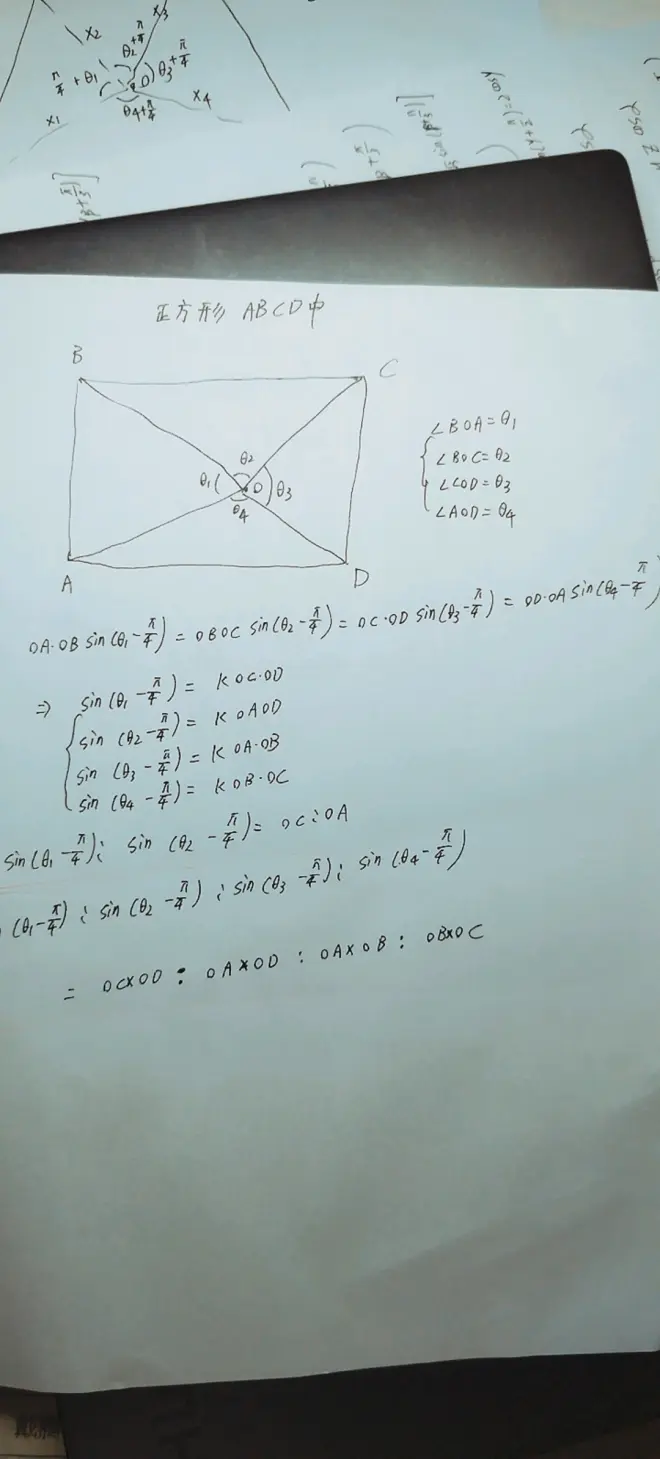 x2
x3
θ2+π/4
π/4+θ1
O
θ3+π/4
x1
θ4+π/4
x4
正方形 ABCD中
B
C
∠BOA=θ1
∠BOC=θ2
∠COD=θ3
∠AOD=θ4
θ2
θ1
O
θ3
θ4
A
D
OA·OB sin(θ1-π/4)=OBOC sin(θ2-π/4)=OC·OD sin(θ3-π/4)=OD·OA sin(θ4-π/4)
⇒ sin(θ1-π/4)=K OC·OD
sin(θ2-π/4)=K OAOD
sin(θ3-π/4)=K OA·OB
sin(θ4-π/4)=K OB·OC
sin(θ1-π/4): sin(θ2-π/4)=OC:OA
(θ1-π/4): sin(θ2-π/4): sin(θ3-π/4): sin(θ4-π/4)
= OC×OD : OA×OD : OA×OB : OB×OC